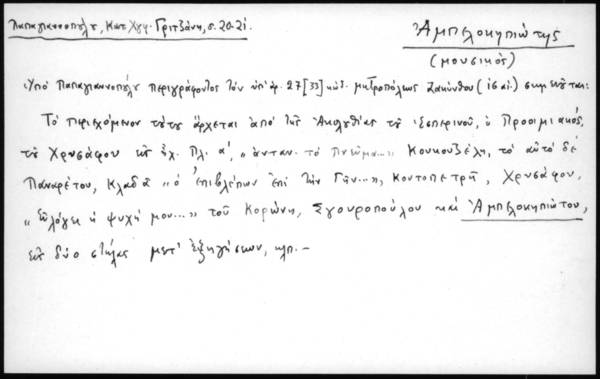 Παπαγιαννοπούλου, Κατ. Χφφ. Γριτζάνη, σ. 20-21.
Ἀμπελοκηπιώτης
(μουσικός)
Ὑπὸ Παπαγιαννοπούλου περιγράφοντος τὸν ὑπ' ἀρ. 27 [33] κώδ. μητροπόλεως Ζακύνθου (ις αἰ.) σημειοῦται:
Τὸ περιεχόμενον τούτου ἄρχεται ἀπὸ τῆς Ἀκολουθίας τοῦ Ἑσπερινοῦ, ὁ Προοιμιακός,
τοῦ Χρυσάφου εἰς ἦχ. Πλ. α', "ἀνταν. τὸ Πνεῦμα..." Κουκουζέλη, τὸ αὐτὸ δὲ
Παναρέτου, Κλαδᾶ "ὁ ἐπιβλέπων ἐπὶ τὴν Γῆν...", Κοντοπετρῆ, Χρυσάφου,
"εὐλόγει ἡ ψυχή μου..." τοῦ Κορώνη, Σγουροπούλου καὶ Ἀμπελοκηπιώτου,
εἰς δύο στήλας μετ' ἐξηγήσεων, κλπ. –